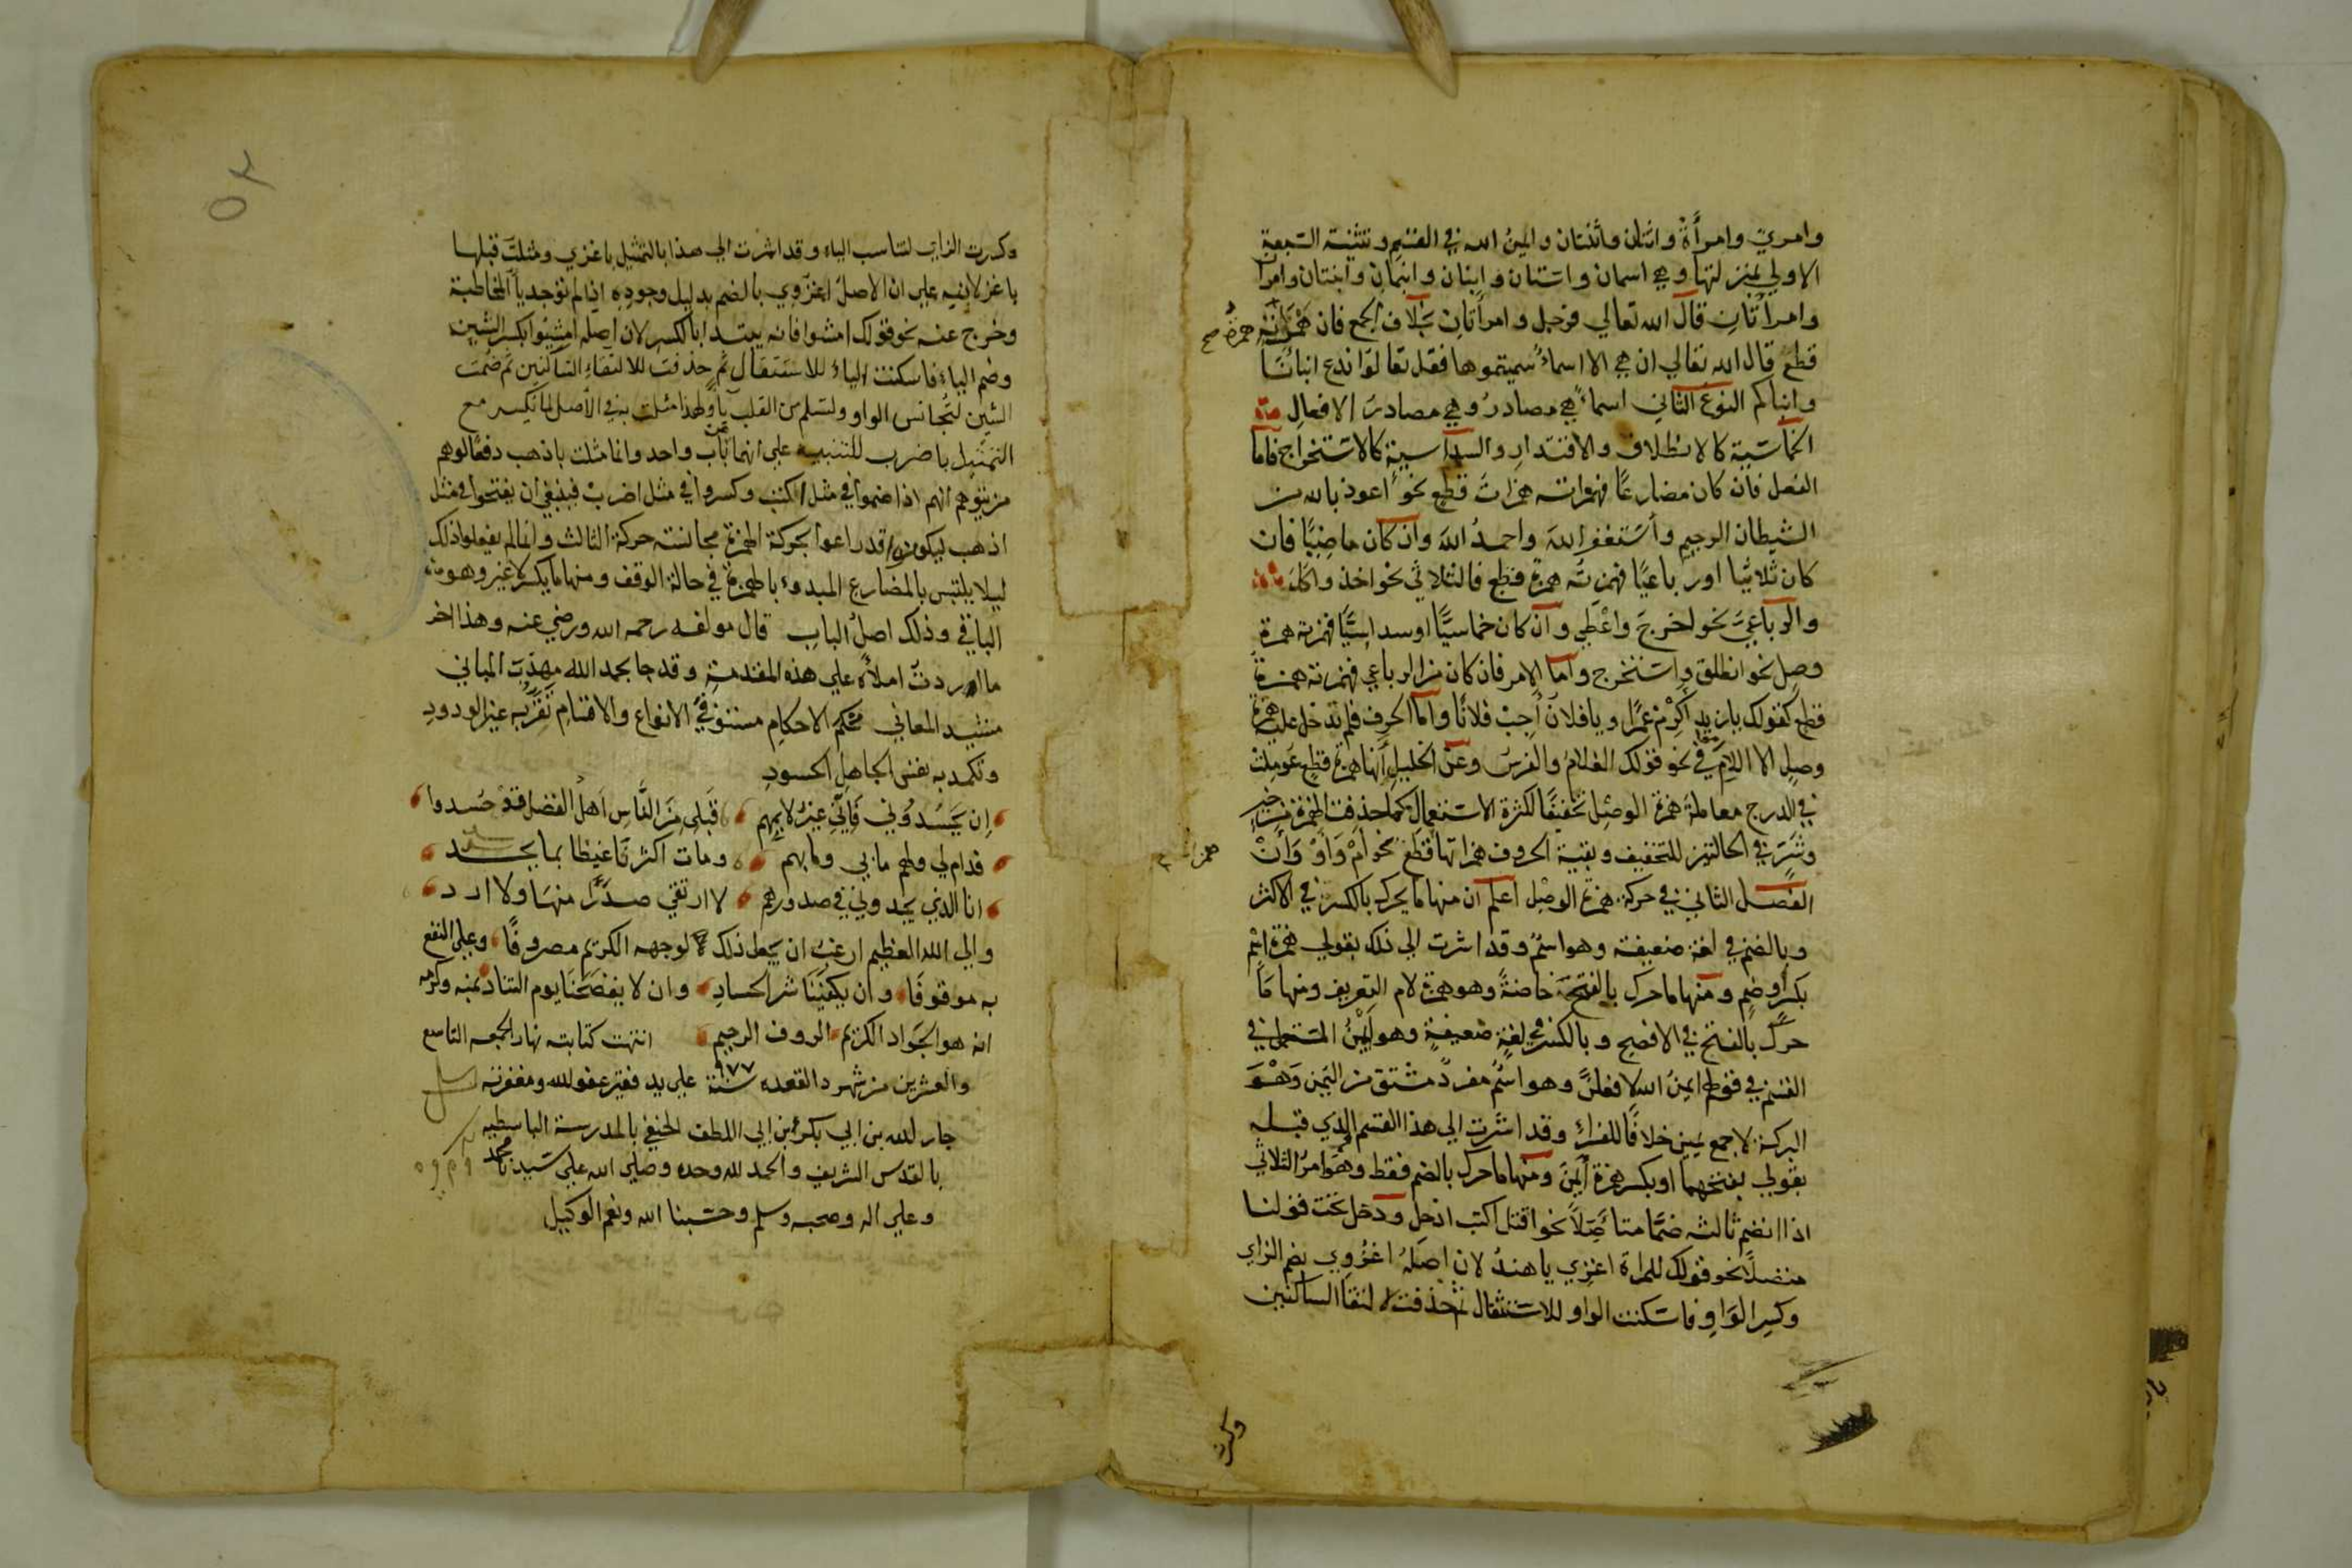 وامرئ وامرأة واثنان واثنتان وايمن الله في القسم وتثنية السبعة
الاولي بمنزلتها وهي اسمان واستان وابنان وابنمان وابنتان وامرآ
وامرأتان قال الله تعالي فرجل وامرأتان بخلاف الجمع فان همزاته
همزة صح
قطع قال الله تعالي ان هي الا اسماء سميتموها فقل تعالوا ندع ابنانا
وابناكم النوع الثاني اسماء هي مصادر وهي مصادر الافعال
الخماسية كالانطلاق والاقتدار والسداسية كالاستخراج فاما
الفعل فان كان مضارعا فهمزاته همزات قطع نحو اعوذ بالله من
الشيطان الرجيم وأستغفر الله واحمد الله وان كان ماضيا فان
كان ثلاثيا او رباعيا فهمزته همزة قطع فالثلاثي نحو اخذ واكل
والرباعي نحو اخرج واعطي وان كان خماسيا او سداسيا فهمزته همزة
وصل نحو انطلق واستخرج واما الامر فان كان من الرباعي فهمزته همزة
قطع كقولك يا زيد أكرم عمرا ويا فلان أجب فلانا واما الحرف فلم تدخل عليه همزة
وصل الا اللام في نحو قولك الغلام والفرس وعن الخليل أنها همزة قطع عوملت
في الدرج معاملة همزة الوصل تخفيفا لكثرة الاستعمال كما حذفت الهمزة من خير
وشر في الحالتين للتخفيف وبقية الحروف همزاتها قطع نحو أم وأو وأن
الفصل الثاني في حركة همزة الوصل اعلم ان منها ما يحرك بالكسر في الاكثر
وبالضم في لغة ضعيفة وهو اسم وقد اشرت الي ذلك بقولي همزة اسم
بكسر أو ضم ومنها ما حرك بالفتح خاصة وهو همزة لام التعريف ومنها ما
حرك بالفتح في الافصح وبالكسر في لغة ضعيفة وهو أيمن المستعمل في
القسم في قولهم ايمن الله لافعلن وهو اسم مفرد مشتق من اليمن وهو
البركة لا جمع يمين خلافا للفراء وقد اشرت الي هذا القسم الذي قبله
بقولي بفتحهما او بكسر همزة أيمن ومنها ما حرك بالضم فقط وهو امر الثلاثي
اذا انضم ثالثه ضما متأصلا نحو اقتل اكتب ادخل ودخل تحت قولنا
متصلا نحو قولك للمراة اغزي يا هند لان اصله اغزوي بضم الزاي
وكسر الواو فاسكنت الواو للاستثقال ثم حذفت لالتقا الساكنين
وكسرت
وكسرت الزاي لتناسب الياء وقد اشرت الي هذا بالتمثيل باغزي ومثلت قبلها
باغز لانبه علي ان الاصل اغزوي بالضم بدليل وجوده اذا لم توجد ياء المخاطبة
وخرج عنه نحو قولك امشوا فانه يبتدا بالكسر لان اصله امشيوا بكسر الشين
وضم الياء فاسكنت الياء للاستثقال ثم حذفت للالتقاء الساكنين ثم ضمت
الشين لتجانس الواو ولتسلم من القلب ياء ولهذا مثلت به في الأصل لما يكسر مع
التمثيل باضرب للتنبيه علي انهما من باب واحد وانما مثلت باذهب دفعا لوهم
من يتوهم انهم اذا ضموا في مثل اكتب وكسروا في مثل اضرب فينبغي ان يفتحوا في مثل
اذهب ليكونوا قد راعوا بحركة الهمزة مجانسة حركة الثالث وانما لم يفعلوا ذلك
ليلا يلتبس بالمضارع المبدوء بالهمزة في حالة الوقف ومنها ما يكسر لا غير وهو
الباقي وذلك اصل الباب قال مولفه رحمه الله ورضي عنه وهذا اخر
ما اردت املأه علي هذه المقدمة وقد جا بحمد الله مهذب المباني
مشيد المعاني محكم الاحكام مستوفي الانواع والاقسام تقر به عين الودود
وتكمد به نفس الجاهل الحسود
ان يحسدوني فاني غير لايمهم قبلي من الناس اهل الفضل قد حسدوا
فدام لي ولهم ما بي وما بهم ومات اكثرنا غيظا بما يجد
انا الذي يجدوني في صدورهم لا ارتقي صدرا منها ولا ارد
والي الله العظيم ارغب ان يجعل ذلك لوجهه الكريم مصروفا وعلي النفع
به موقوفا وان يكفينا شر الحساد وان لا يفضحنا يوم التناد بمنه وكرمه
انه هو الجواد الكريم الروف الرحيم انتهت كتابته نهار الجمعه التاسع
والعشرين من شهر ذ القعده سنة ٩٧٧ علي يد فقير عفو الله ومغفرته
جار الله بن ابي بكر بن ابي اللطف الحنفي بالمدرسة الباسطيه
بالقدس الشريف والحمد لله وحده وصلى الله علي سيدنا محمد
وعلي اله وصحبه وسلم وحسبنا الله ونعم الوكيل